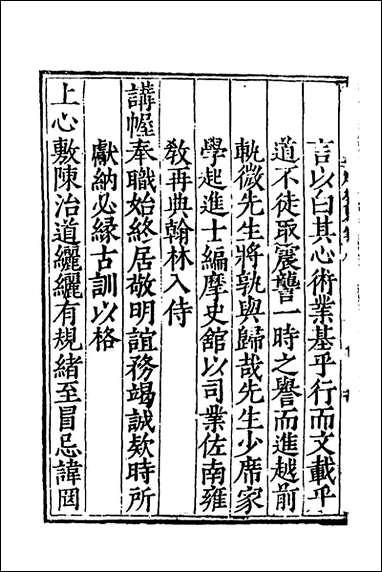 言以白其心術業基乎行而文載乎
道不徒取震讋一時之譽而進越前
軌微先生將孰與歸哉先生少席家
學起進士編摩史館以司業佐南雍
敎再典翰林入侍
講幄奉職始終居敬明誼務竭誠欵時所
獻納必縁古訓以格
上心敷陳治道纚纚有規緒至冒忌諱罔